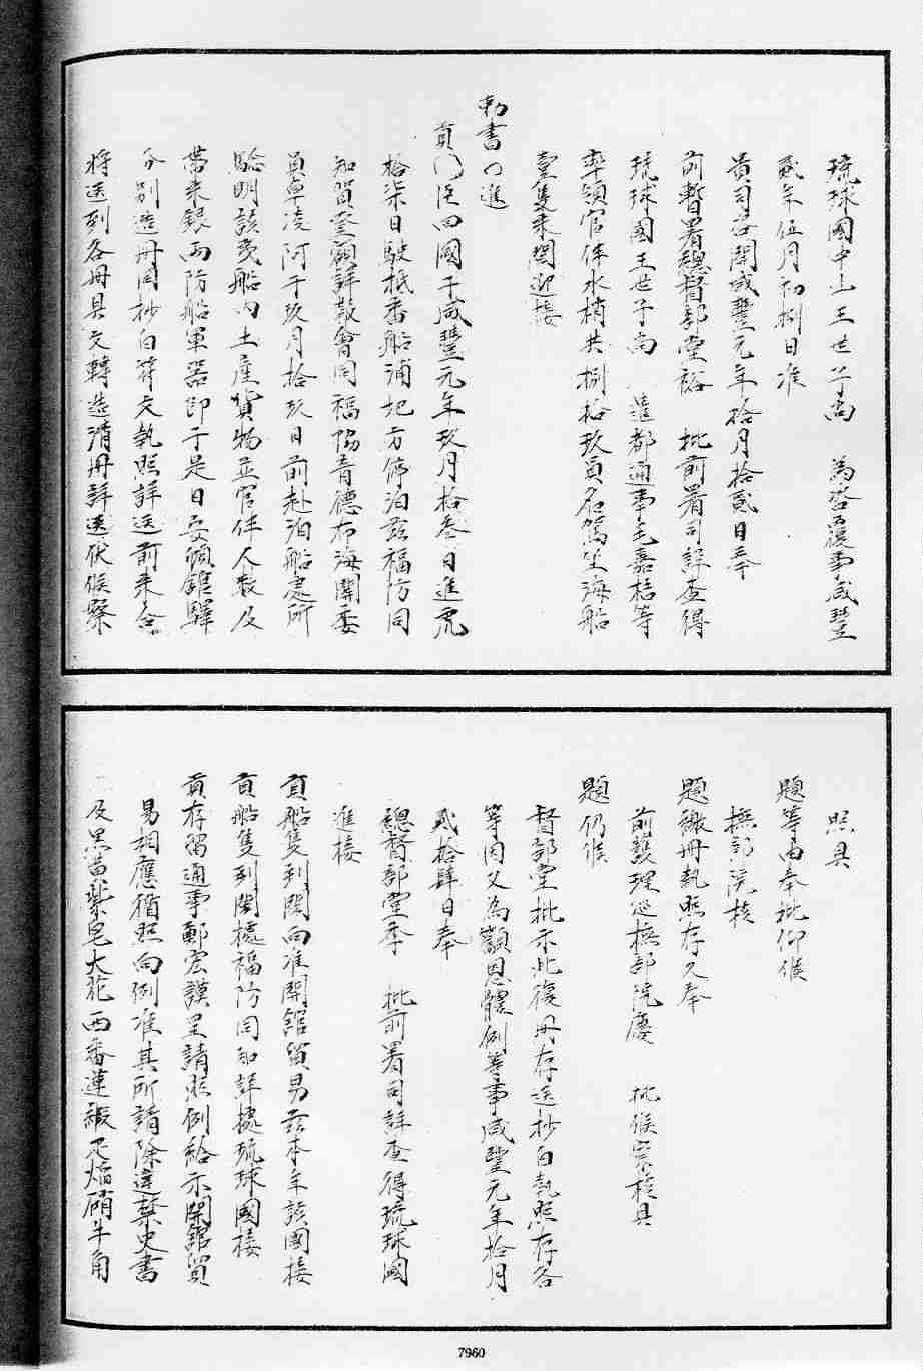 琉球國中山王世子尚　為咨覆事咸豐
貳年伍月初捌日准
貴司咨開咸豐元年拾月拾貳日奉
前暫署總督部堂裕　批前署司詳查得
琉球國王世子尚　遣都通事毛嘉榙等
率領官伴水梢共捌拾玖員名駕坐海船
壹隻來閩迎接
勅書以進
貢以進回國于咸豐元年玖月拾叁日進虎
拾柒日駛抵番船浦地方停泊茲福防同
知貿登願詳報會同福協青德布海關委
員卓凌阿于玖月拾玖日前赴泊船處所
驗明該夷船內土產貨物並官伴人數及
帶來銀兩防船軍器即于是日安頓館驛
分別造冊同抄白符文執照詳送前來合
將送到各冊具文轉造清冊詳送伏候察
照具
題等由奉批仰候
撫部院核
題繳冊執照存又奉
前護理巡撫部院慶　批候察核具
題仍候
督部堂批示此復冊存送抄白執照存各
等因又為顯恩體例等事咸豐元年拾月
貳拾肆日奉
總督部堂季　批前署司詳查得琉球國
進接
貢船隻到閩向准開館貿易茲本年該國接
貢船隻到閩據福防同知詳據琉球國接
貢存留通事鄭宏謨呈請照例給示開館貿
易相應循照向例准其所請除違禁史書
及黑黃紫皂大花西番蓮緞疋焰硝牛角
7960